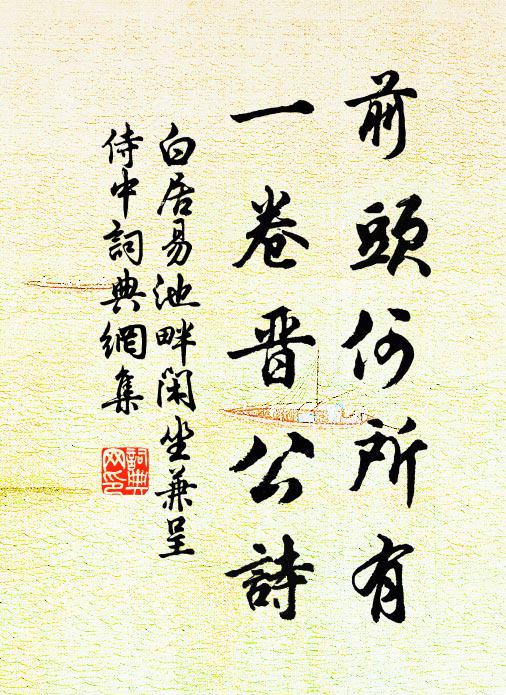 前頭何所有
一卷晋公詩
白居易池畔閑坐兼呈
侍中詞典網集
詞典
网印